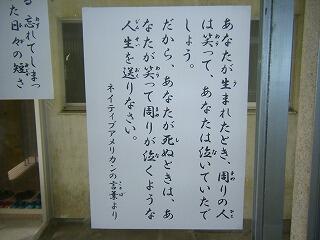 あなたが生まれたとき、周りの人
は笑って、あなたは泣いていたで
しょう。
だから、あなたが死ぬときは、あ
なたが笑って周りが泣くような
人生を送りなさい。
ネイティブアメリカンの言葉より
る忘れてしまっ
た日々の短さ